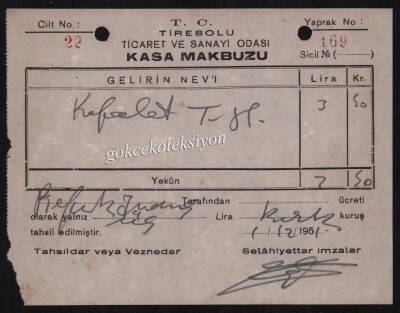 Cilt No : T. C. Yaprak No :
22 TİREBOLU 169
TİCARET VE SANAYİ ODASI
KASA MAKBUZU Sicil №(——)
GELİRİN NEV'İ Lira Kr.
Kefalet 3 50
gokcekoleksiyon
Yekûn 3 50
Tarafından ücreti
olarak yalnız üç Lira kuruş
tahsil edilmiştir. 1/12/1951
Tahsildar veya Veznedar Selâhiyettar imzalar